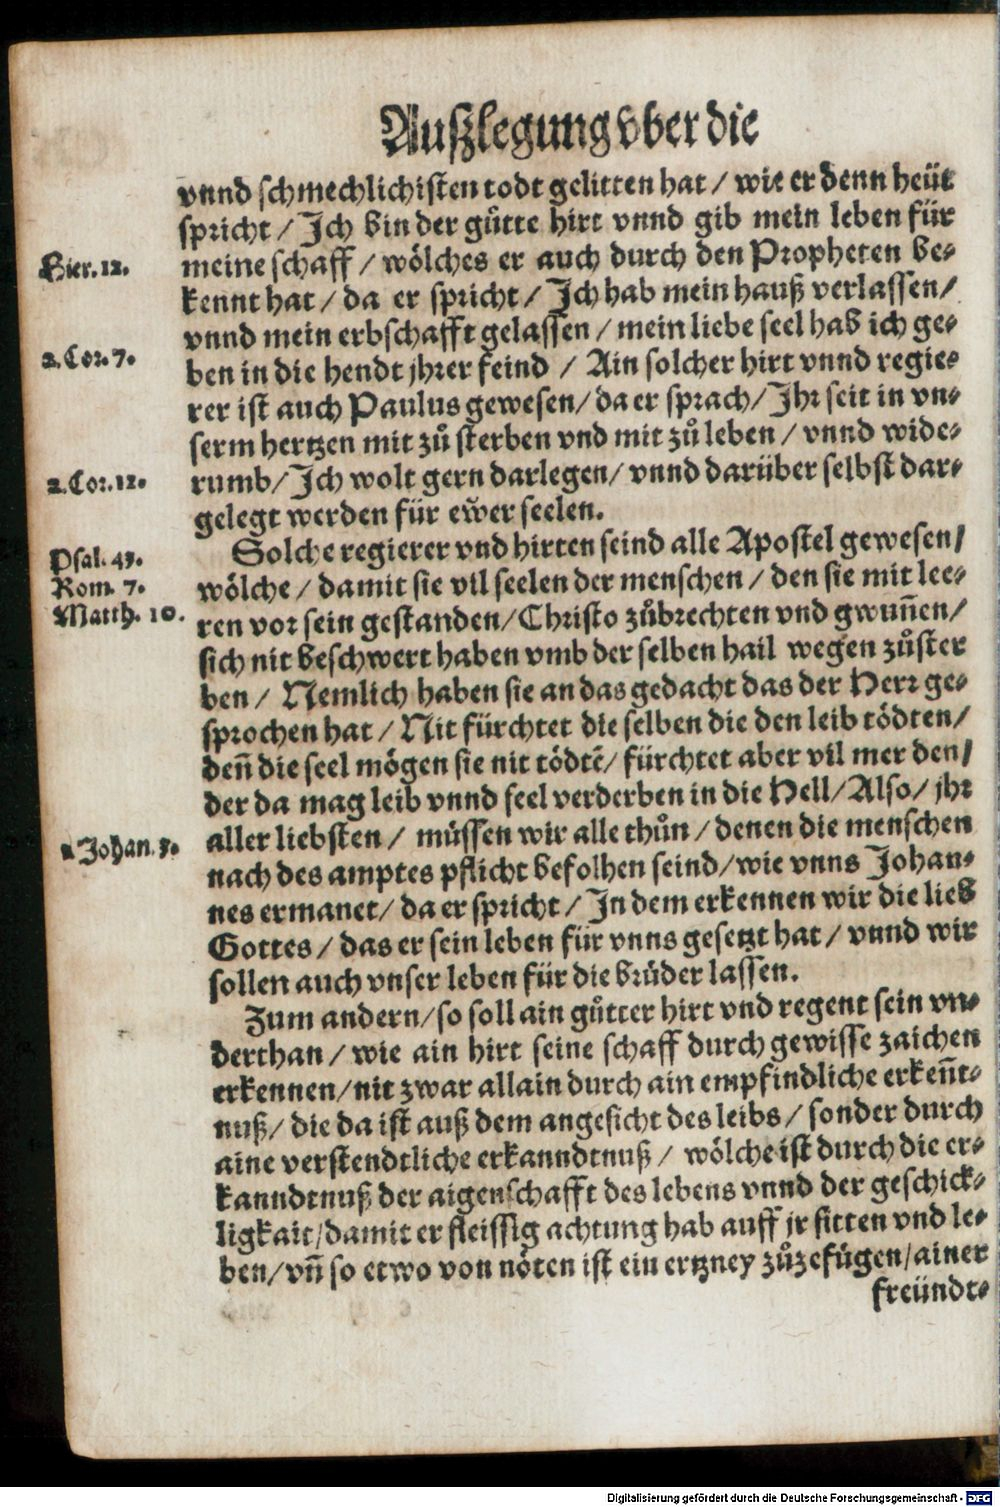 Außlegung vber die
vnnd schmechlichisten todt gelitten hat / wie er denn heüt
spricht / Jch bin der gůtte hirt vnnd gib mein leben für
Hier. 12.
meine schaff / wölches er auch durch den Propheten be-
kennt hat / da er spricht / Jch hab mein hauß verlassen /
vnnd mein erbschafft gelassen / mein liebe seel hab ich ge-
2. Cor. 7.
ben in die hendt jhrer feind / Ain solcher hirt vnnd regie-
rer ist auch Paulus gewesen / da er sprach / Jhr seit in vn-
serm hertzen mit zů sterben vnd mit zů leben / vnnd wide-
2. Cor. 12.
rumb / Jch wolt gern darlegen / vnnd darüber selbst dar-
gelegt werden für ewer seelen.
Psal. 43.
Solche regierer vnd hirten seind alle Apostel gewesen /
Rom. 7.
wölche / damit sie vil seelen der menschen / den sie mit lee-
Matth. 10.
ren vor sein gestanden / Christo zůbrechten vnd gwuñen /
sich nit beschwert haben vmb der selben hail wegen zůster
ben / Nemlich haben sie an das gedacht das der Herr ge-
sprochen hat / Nit fürchtet die selben die den leib tödten /
deñ die seel mögen sie nit tödtē / fürchtet aber vil mer den /
der da mag leib vnnd seel verderben in die Hell / Also / jhr
1 Johan. 3.
aller liebsten / müssen wir alle thůn / denen die menschen
nach des amptes pflicht befolhen seind / wie vnns Johan-
nes ermanet / da er spricht / Jn dem erkennen wir die lieb
Gottes / das er sein leben für vnns gesetzt hat / vnnd wir
sollen auch vnser leben für die brüder lassen.
Zum andern / so soll ain gůtter hirt vnd regent sein vn-
derthan / wie ain hirt seine schaff durch gewisse zaichen
erkennen / nit zwar allain durch ain empfindliche erkeñt-
nuß / die da ist auß dem angesicht des leibs / sonder durch
aine verstendtliche erkanndtnuß / wölche ist durch die er-
kanndtnuß der aigenschafft des lebens vnnd der geschick-
ligkait / damit er fleissig achtung hab auff jr sitten vnd le-
ben / vñ so etwo von nöten ist ein ertzney zůzefügen / ainer
freündt-
Digitalisierung gefördert durch die Deutsche Forschungsgemeinschaft - DFG